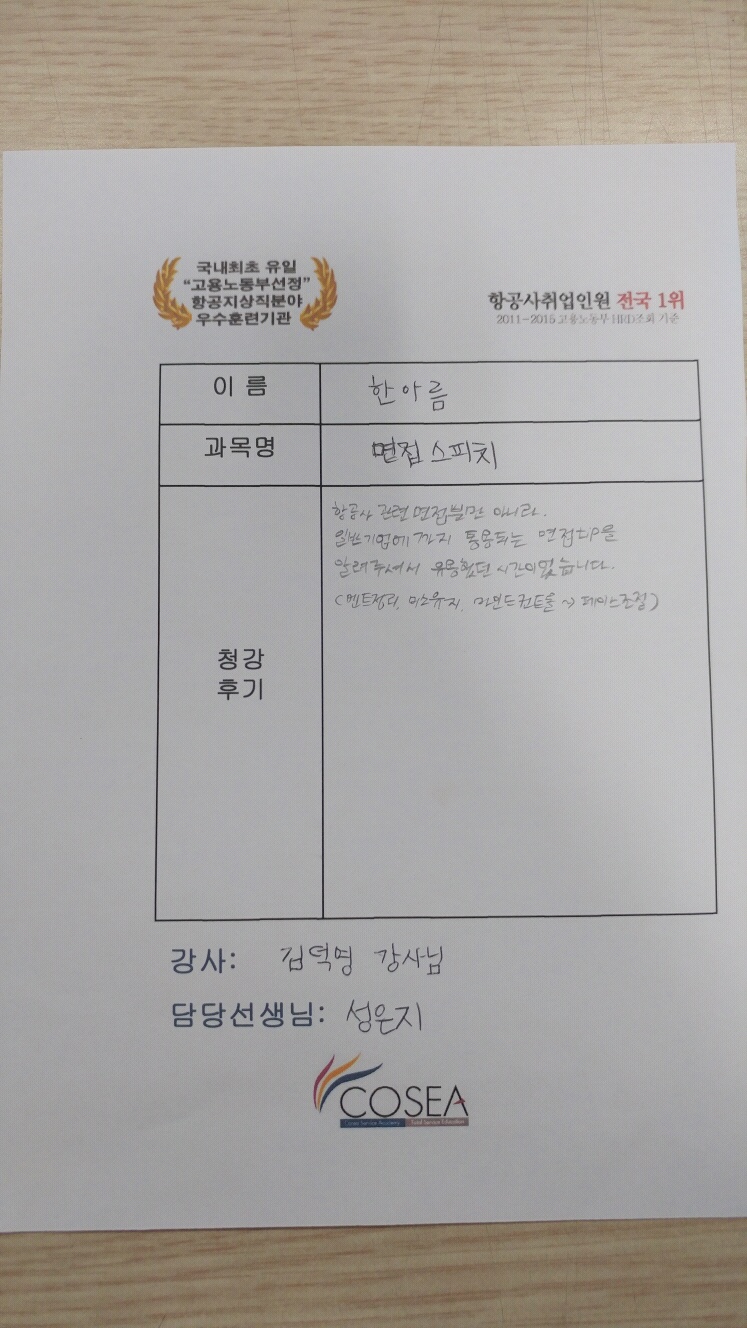 국내최초 유일
"고용노동부선정"
항공지상직분야
우수훈련기관
항공사취업인원 전국 1위
2011-2015 고용노동부 HRD조회 기준
이 름
한아름
과목명
면접 스피치
청강
후기
항공사 관련 면접뿐만 아니라.
일반기업에까지 통용되는 면접tip을
알려주셔서 유용했던 시간이었습니다.
(멘트정리, 미소유지, 마인드컨트롤 ~> 페이스조절)
강사: 김덕영 강사님
담당선생님: 성은지
COSEA
Career Service Academy Total Service Education